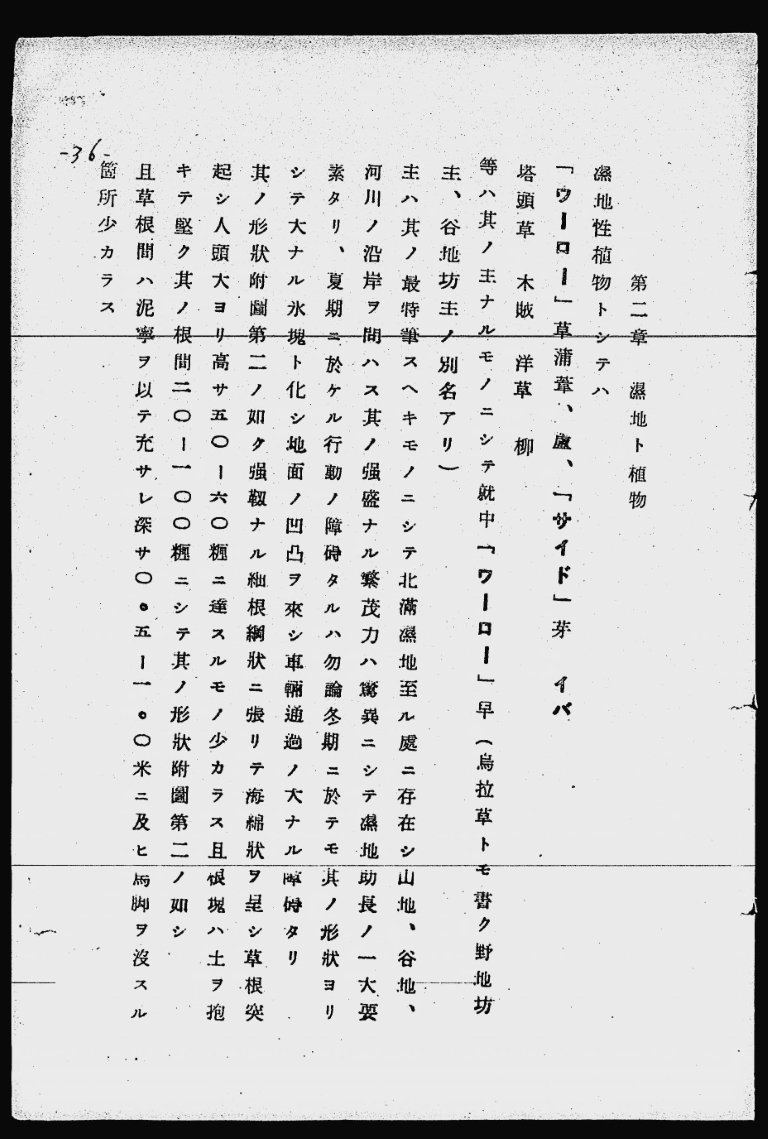 -36-
第二章 濕地ト植物
濕地性植物トシテハ
「ウーロー」草蒲葦、盧、「サイド」芽 イバ
塔頭草 木賊 洋草 柳
等ハ其ノ主ナルモノニシテ就中「ワーロー」早(烏拉草トモ書ク野地坊
主、谷地坊主ノ別名アリ)
主ハ其ノ最特筆スヘキモノニシテ北滿濕地至ル處ニ存在シ山地、谷地、
河川ノ沿岸ヲ問ハス其ノ强盛ナル繁茂力ハ驚異ニシテ濕地助長ノ一大要
素タリ、夏期ニ於ケル行動ノ障碍タルハ勿論冬期ニ於テモ其ノ形狀ヨリ
シテ大ナル氷塊ト化シ地面ノ凹凸ヲ來シ車輛通過ノ大ナル障碍タリ
其ノ形狀附圖第二ノ如ク强靱ナル細根網狀ニ張リテ海綿狀ヲ呈シ草根突
起シ人頭大ヨリ高サ五〇ー六〇糎ニ達スルモノ少カラス且根塊ハ土ヲ抱
キテ堅ク其ノ根間二〇ー一〇〇糎ニシテ其ノ形狀附圖第二ノ如シ
且草根間ハ泥寧ヲ以テ充サレ深サ〇。五ー一。〇米ニ及ヒ馬脚ヲ沒スル
箇所少カラス